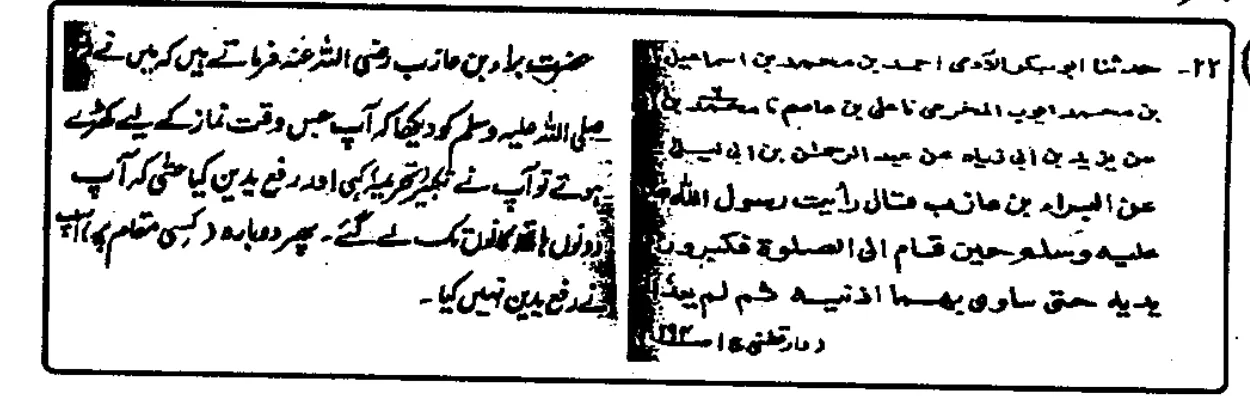 ۲۲- حدثنا ابو بکر الآدمی احمد بن محمد بن اسماعیل
بن محمد ایوب المخرمی نا علی بن عاصم نا محمد بن
عن یزید بن ابی زیاد عن عبد الرحمٰن بن ابی لیلیٰ
عن البراء بن عازب قال رأیت رسول اللہ
علیہ وسلم حین قام الی الصلوٰة فکبر ور
یدیہ حتی ساوی بھما اذنیہ ثم لم یعد
(دار قطنی ج۱ ص ۲۹۴
حضرت براء بن عازب رضی اللہ عنہ فرماتے ہیں کہ میں نے
صلی اللہ علیہ وسلم کو دیکھا کہ آپ جس وقت نماز کے لیے کھڑے
ہوئے تو آپ نے تکبیر تحریمہ کہی اور رفع یدین کیا حتٰی کہ آپ
دونوں ہاتھ کانوں تک لے گئے۔ پھر دوبارہ (کسی مقام پر) آپ
نے رفع یدین نہیں کیا۔